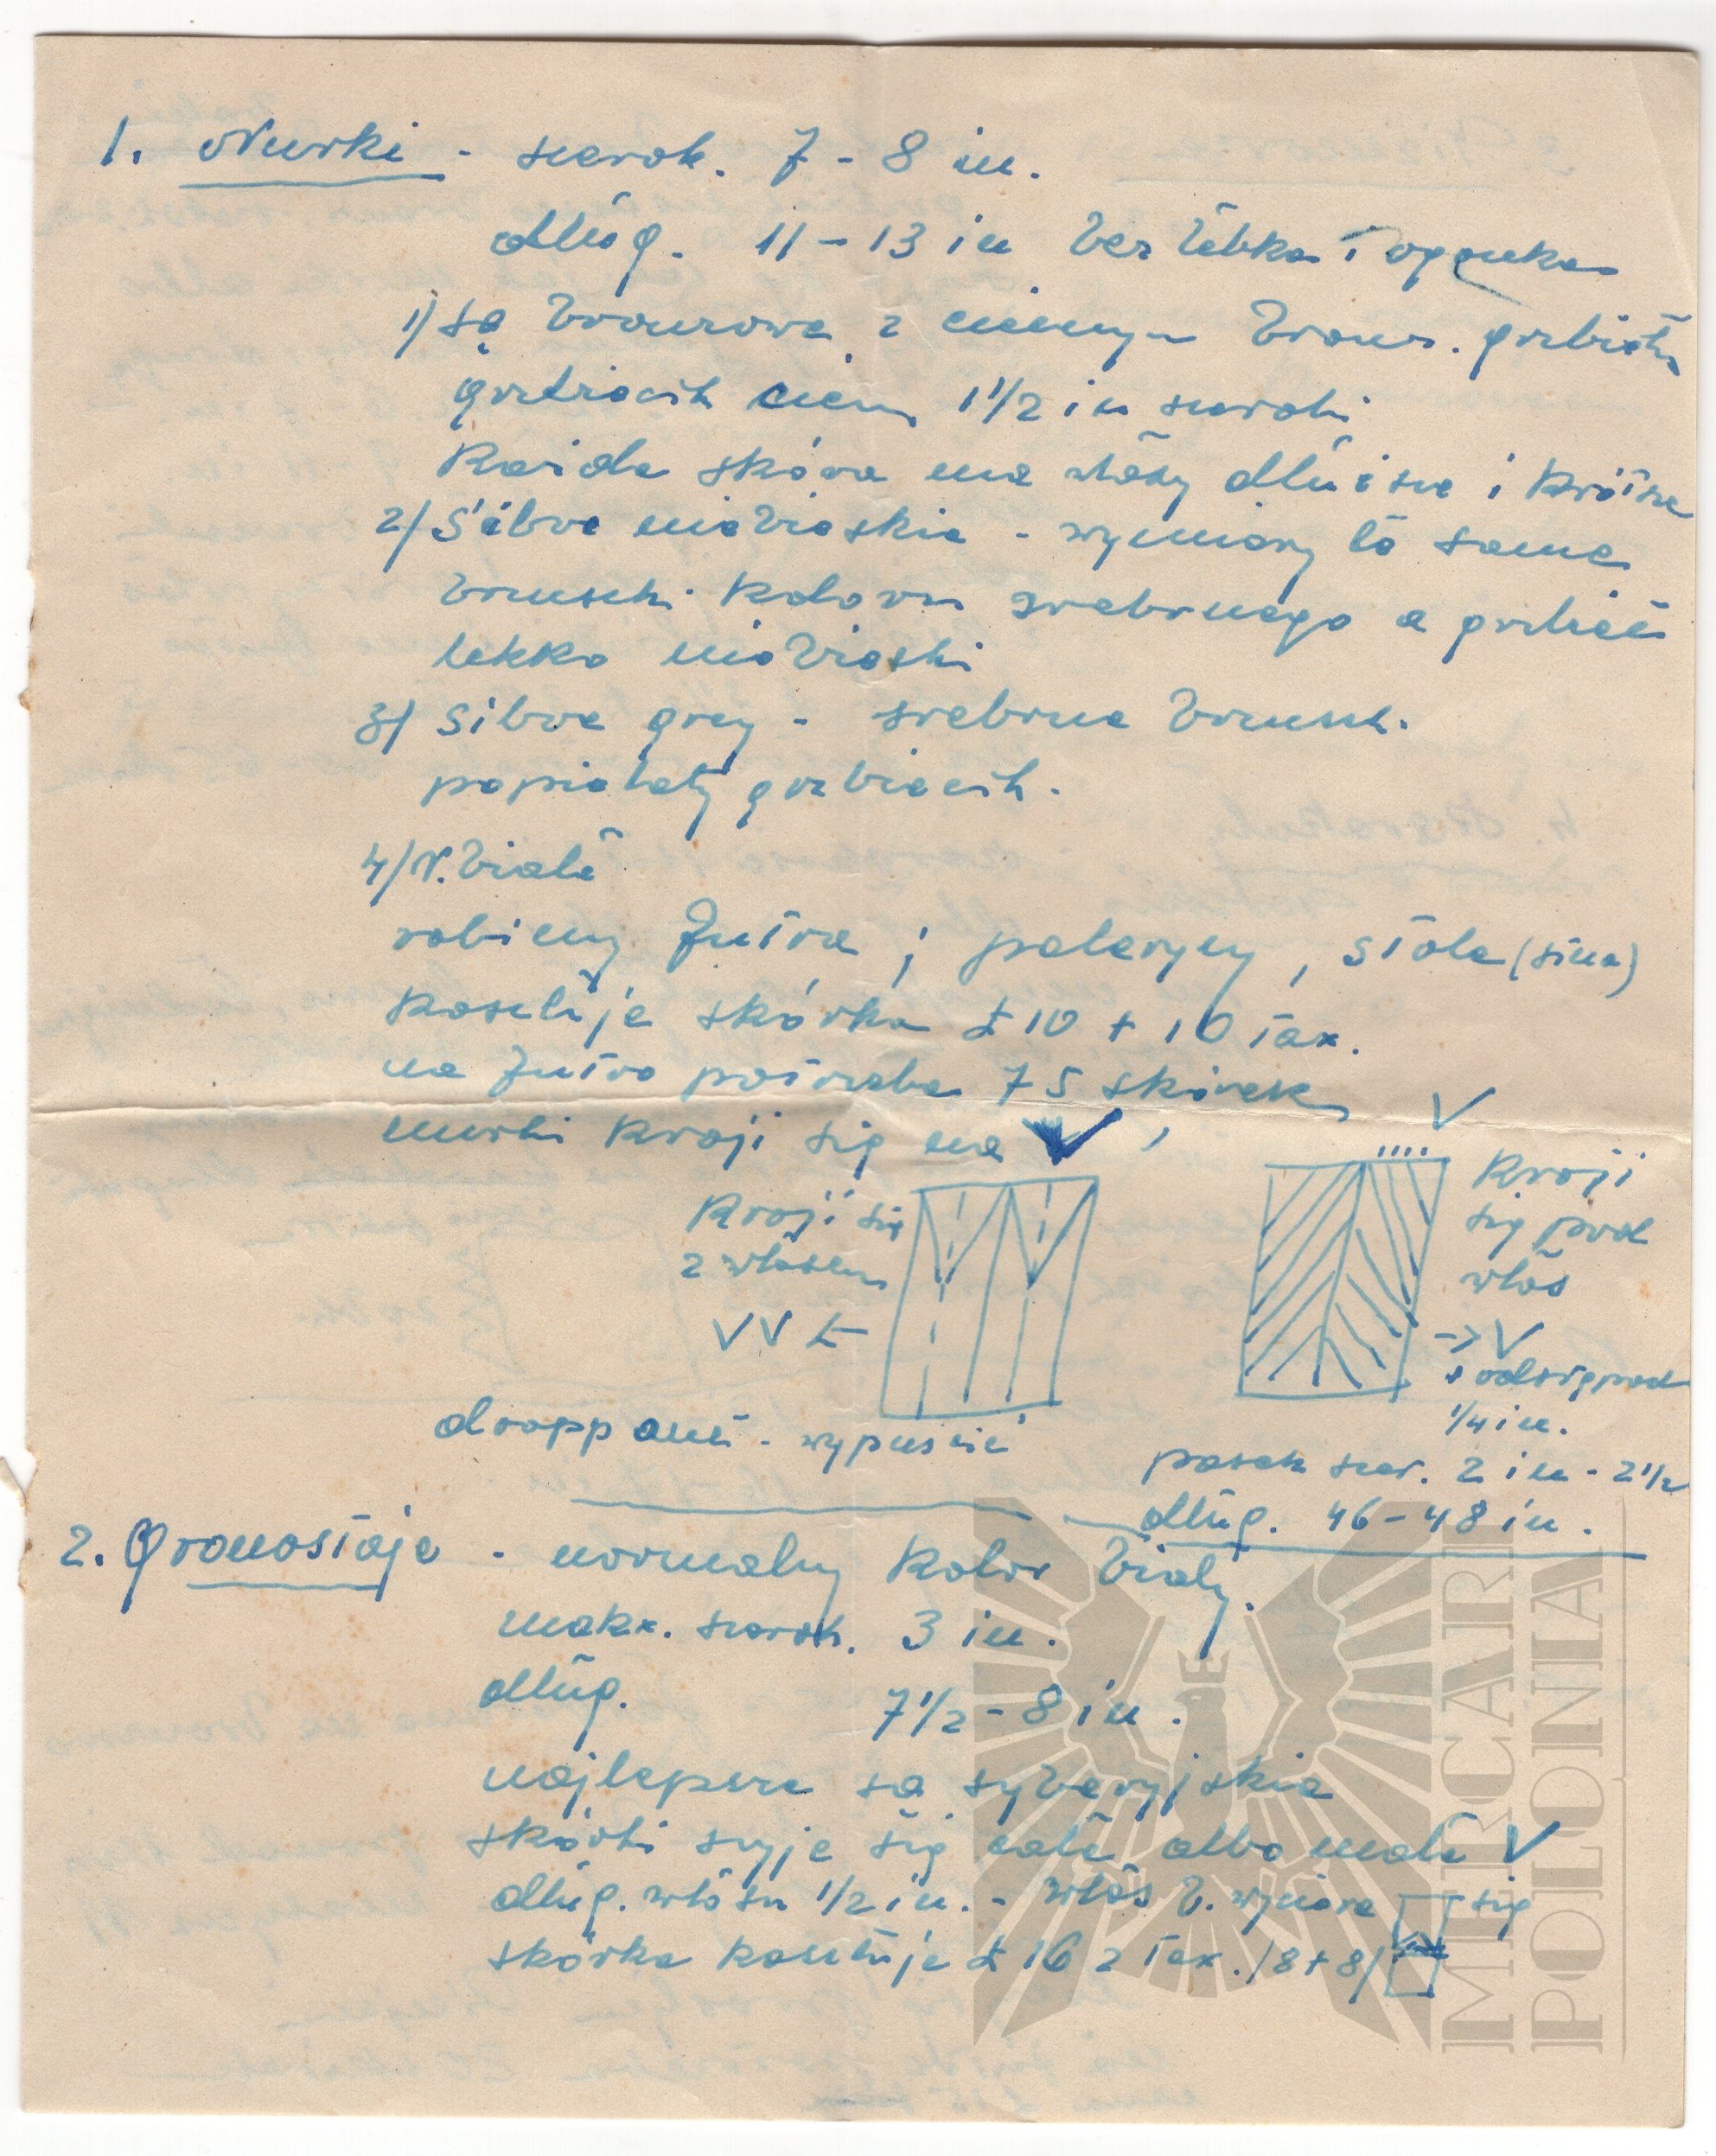 1. Nurki - szerok. 7 - 8 in.
dług. 11 - 13 in bez łebka i ogonka
1) są bronzowe z ciemnym bronz. grzbietem
grzbiecik ciem. 1 1/2 in szeroki
Każda skóra ma włosy dłuższe i krótsze
2) Silbre niebieskie - wymiary te same
brzuszk. koloru srebrnego a grzbiet
lekko niebieski
3) Silbre grey - srebrne brzuszk.
popielaty grzbiecik.
4) N. białe
robimy futra, peleryny, stole (    )
kosztuje skórka £ 10 + 10 tax.
na futro potrzeba 75 skórek
nurki kroji się na V,
V
Kroji się
z włosem
V V
Kroji
się pod
włos
-> V
1/4 in.
droppować - wypuścić
pasek szer. 2 in - 2 1/2
dług. 46 - 48 in.
2. Gronostaje - normalny kolor biały.
maks. szerok. 3 in.
dług. 7 1/2 - 8 in.
najlepsze są syberyjskie
skórki szyje się całe albo małe V
dług. włosu 1/2 in. - włos b. wyciera się
skórka kosztuje £ 16 z tax. /8+8/
MERCARI
POLONIA